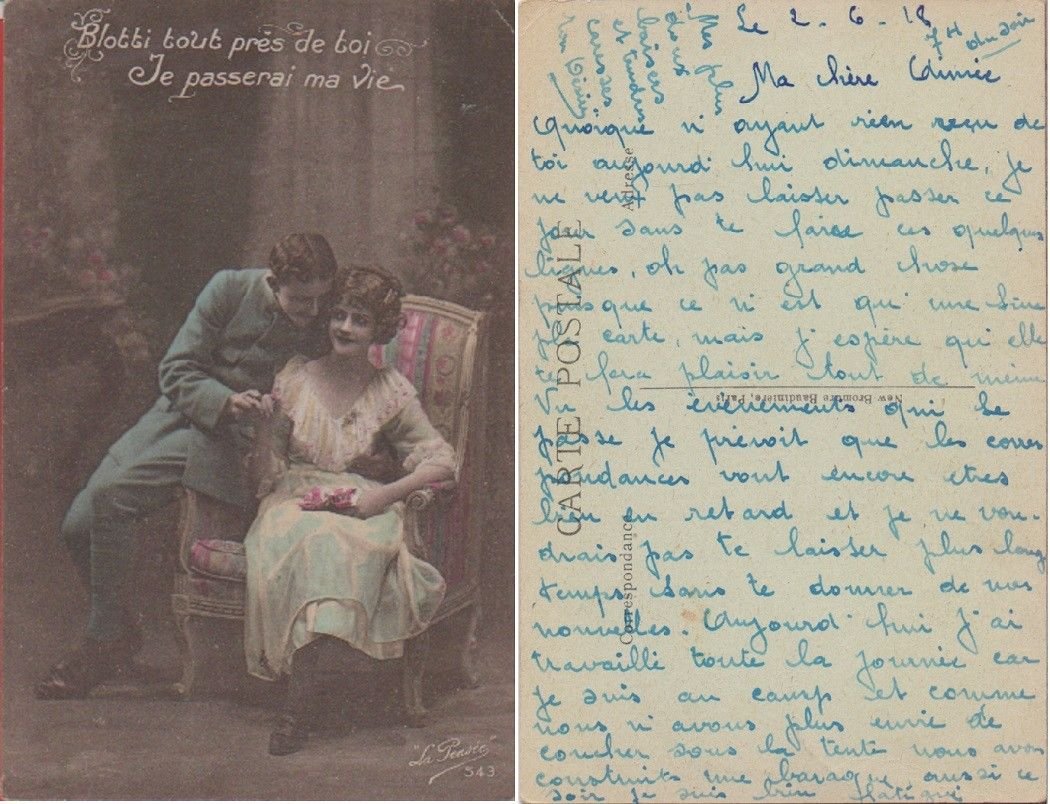 Blotti tout près de toi
Je passerai ma vie
"La Pensée"
543
Le 2 - 6 - 18
7H du soir
Ma chère Aimée
Quoique n'ayant rien reçu de
toi aujourdi hui dimanche, je
ne veux pas laisser passer ce
jour sans te faire ces quelques
lignes, oh pas grand chose
puisque ce n'est qui une
carte, mais j'espère qui elle
te fera plaisir tout de même
Vu les évènements qui se
passe je prévoit que les corres
pondances vont encore etres
bien en retard et je ne vou-
drais pas te laisser plus long
temps sans te donner de nos
nouvelles. Aujourd'hui j'ai
travaillé toute la journée car
je suis au camp et comme
nous n'avons plus envie de
coucher sous la tente nous avons
construits une baraque aussi ce
soir je suis bien fatigué
Mes plus
doux
baisers
et tendres
caresses
Ton
CARTE POSTALE
Correspondance
Adresse
New Bromure Baudinière, Paris